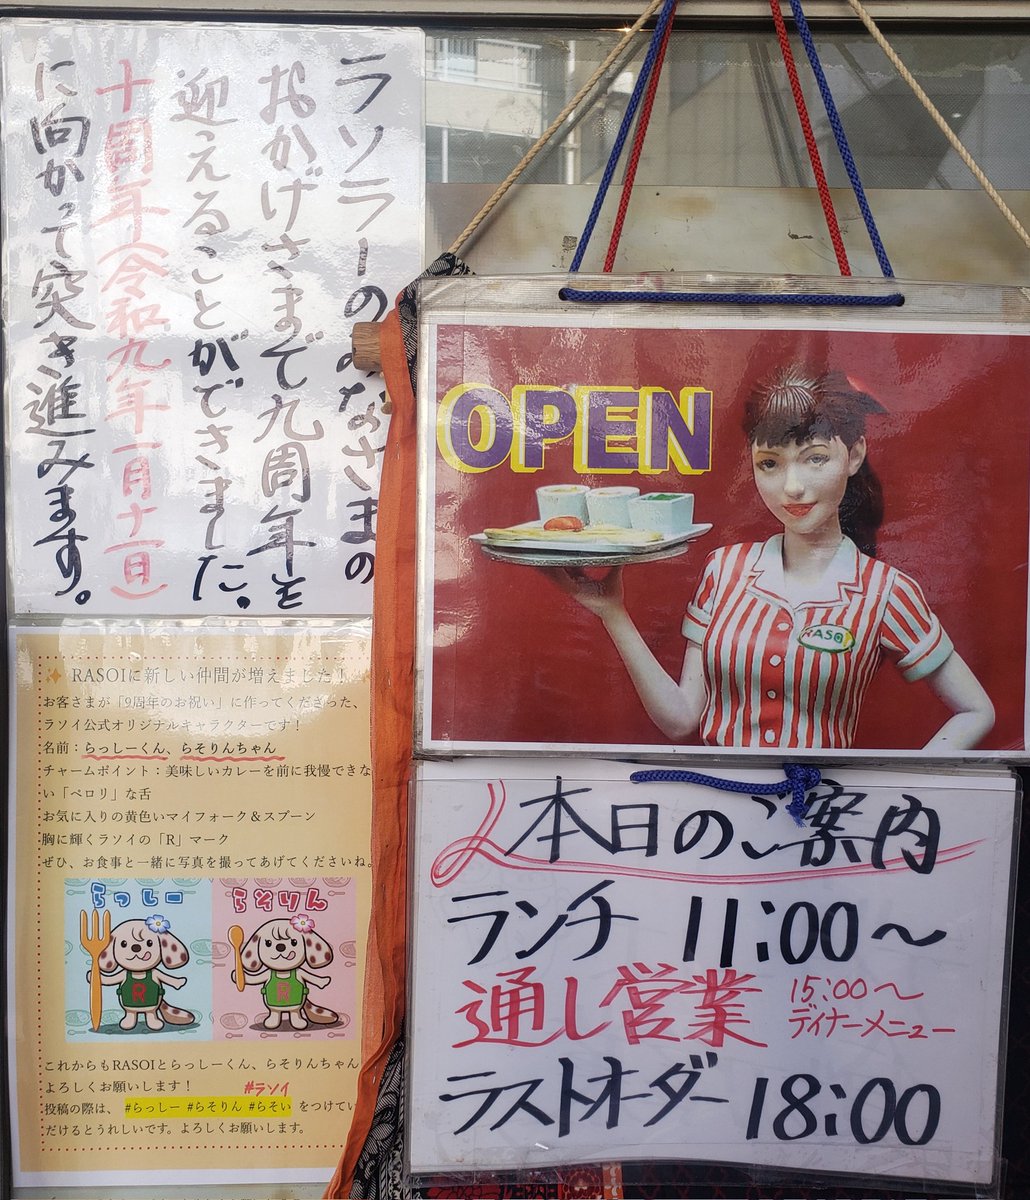 ラソラーのみなさまの
おかげさまで九周年を
迎えることができました。
十周年(令和九年一月十一日)
に向かって突き進みます。
RASOIに新しい仲間が増えました！
お客さまが「9周年のお祝い」に作ってくださった、
ラソイ公式オリジナルキャラクターです！
名前：らっしーくん、らそりんちゃん
チャームポイント：美味しいカレーを前に我慢できな
い「ペロリ」な舌
お気に入りの黄色いマイフォーク＆スプーン
胸に輝くラソイの「R」マーク
ぜひ、お食事と一緒に写真を撮ってあげてくださいね。
らっしー
らそりん
R
R
これからもRASOIとらっしーくん、らそりんちゃん
よろしくお願いします！
#ラソイ
投稿の際は、 #らっしー #らそりん #らそい をつけてい
だけるとうれしいです。よろしくお願いします。
OPEN
RASOI
本日のご案内
ランチ 11:00〜
通し営業 15:00〜
ディナーメニュー
ラストオーダー 18:00